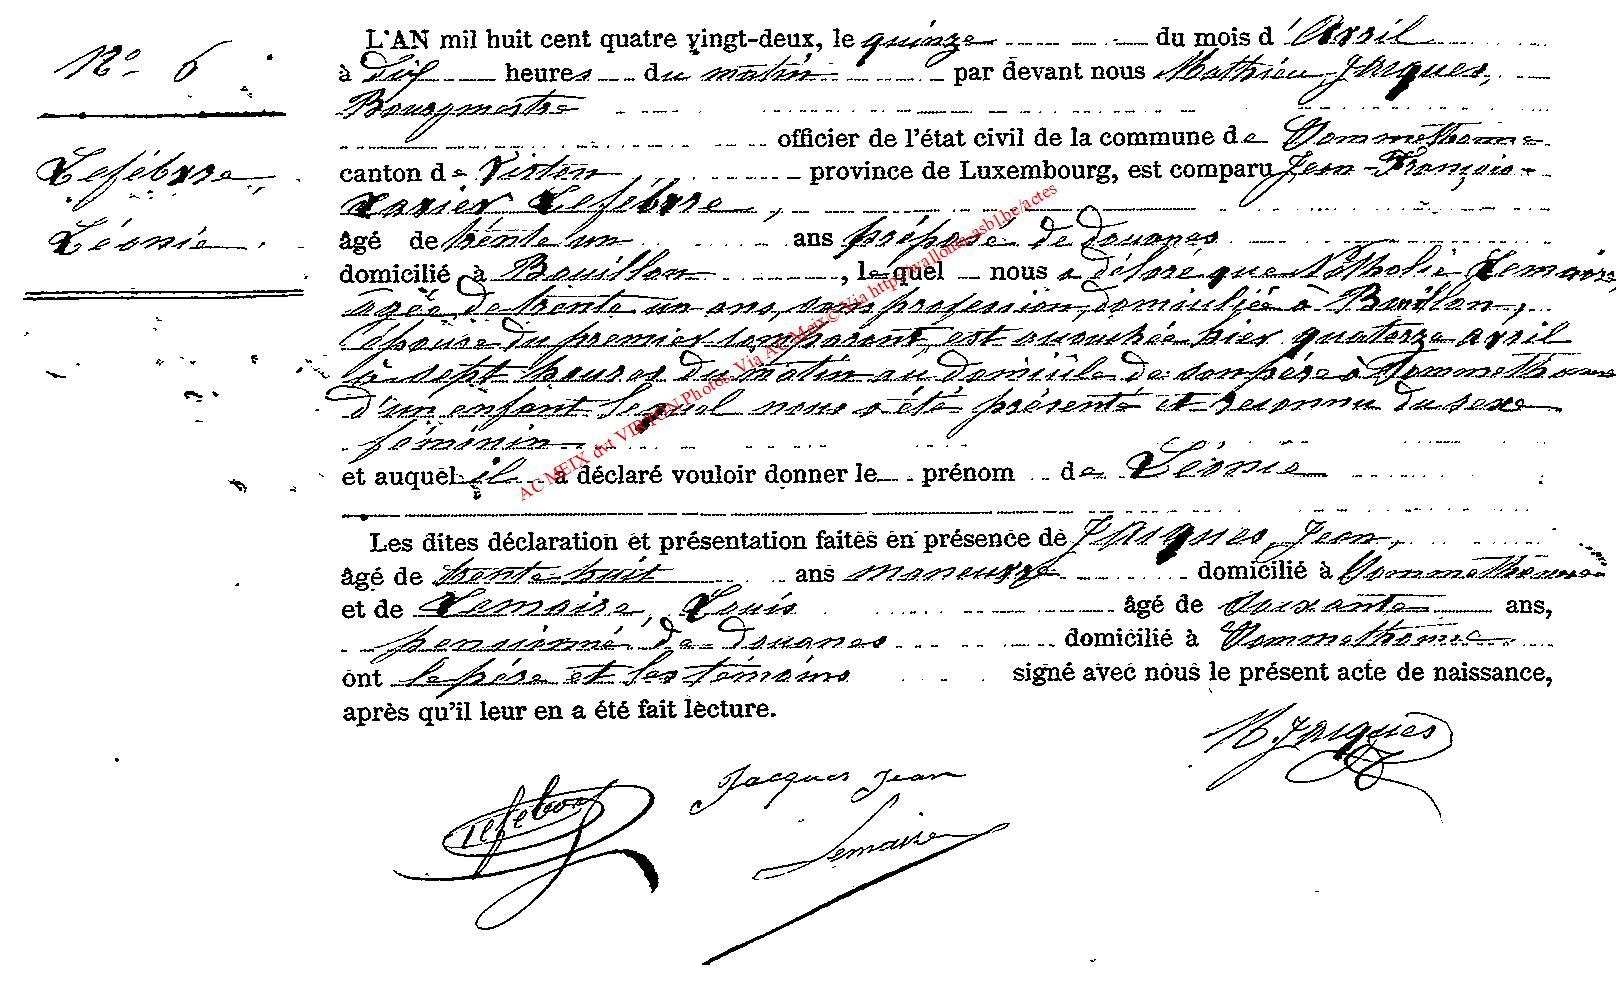 N° 6
Lefébvre
Léonie
L'AN mil huit cent quatre vingt-deux, le quinze du mois d'Avril
à dix heures du matin par devant nous Mathieu Jacques,
Bourgmestre
officier de l'état civil de la commune de Sommethonne
canton de Virton, province de Luxembourg, est comparu Jean-François-
Xavier Lefébvre,
âgé de trente un ans préposé de douanes
domicilié à Bouillon, lequel nous a déclaré que Nathalie Lemaire,
agée de trente un ans, sans profession, domiciliée à Bouillon,
épouse du premier comparant, est accouchée hier quatorze avril
à sept heures du matin au domicile de son père à Sommethonne
d'un enfant lequel nous a été présenté et reconnu du sexe
féminin
et auquel il a déclaré vouloir donner le prénom de Léonie
Les dites déclaration et présentation faites en présence de Jacques, Jean,
âgé de trente huit ans maneuvre domicilié à Sommethonne
et de Lemaire, Louis âgé de soixante ans,
pensionné de douanes domicilié à Sommethonne
ont le père et les témoins signé avec nous le présent acte de naissance,
après qu'il leur en a été fait lecture.
M. Jacques
Jacques Jean
Lefebvre
Lemaire
AC MEIX dvt VIRTON Photos. Via AC Meix © Via http://wallonia-asbl.be/actes